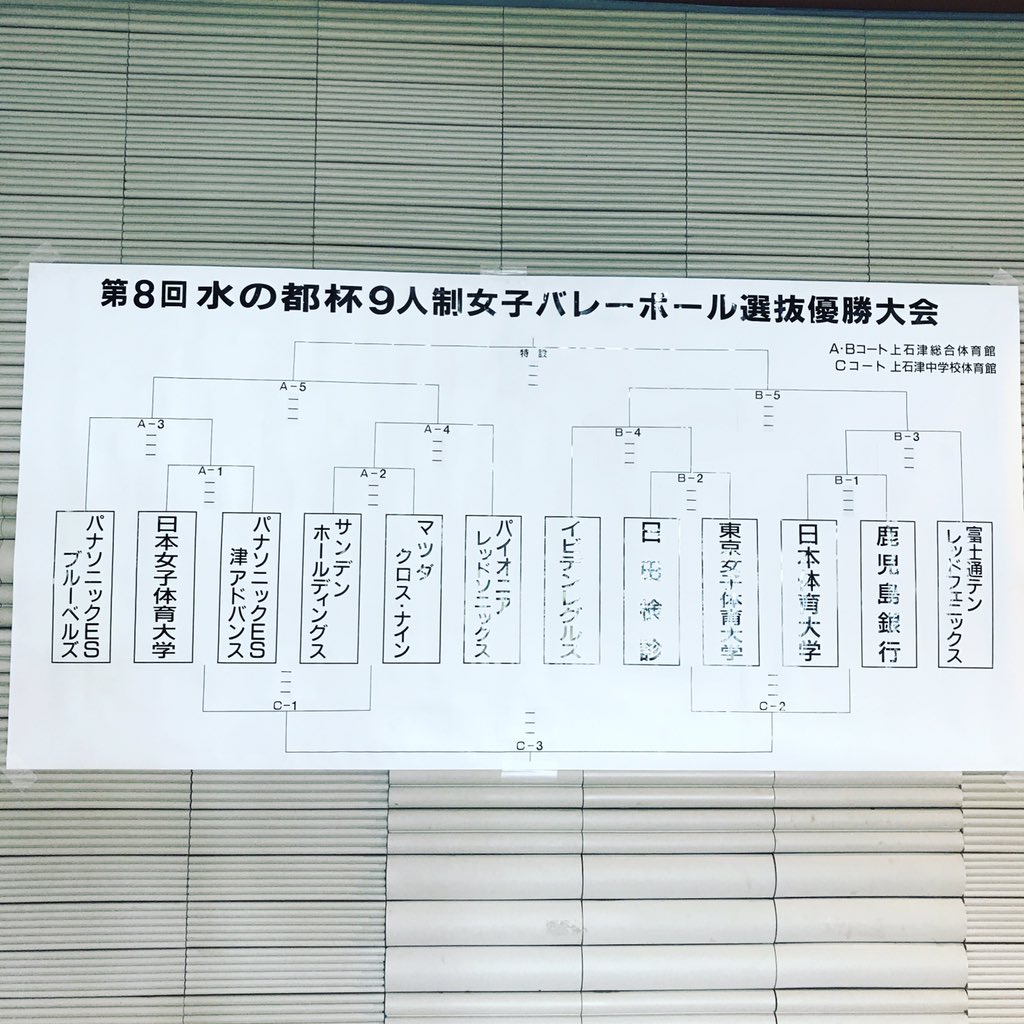 第8回 水の都杯9人制女子バレーボール選抜優勝大会
A・Bコート上石津総合体育館
Cコート 上石津中学校体育館
特設
A-5
B-5
A-3
A-4
B-4
B-3
A-1
A-2
B-2
B-1
パナソニックES
ブルーベルズ
日本女子体育大学
パナソニックES
津アドバンス
サンデン
ホールディングス
マツダ
クロス・ナイン
パイオニア
レッドソニックス
イビデンレグルス
東京女子体育大学
日本体育大学
鹿児島銀行
富士通テン
レッドフェニックス
C-1
C-2
C-3